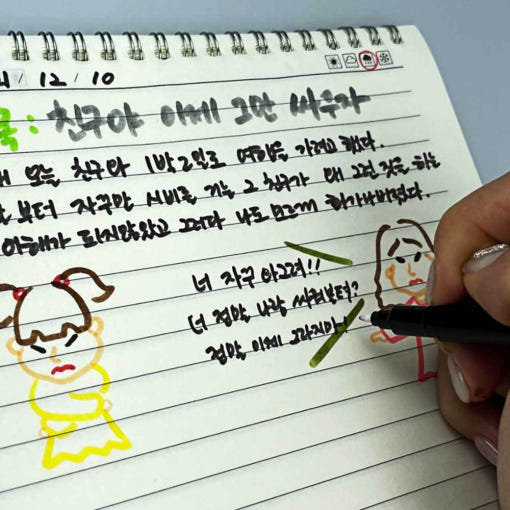 / 12 / 10
: 친구야 이제 그만 싸우자
오늘 친구와 1박2일로 여행을 가려고 했다.
부터 자꾸만 시비를 거는 그 친구가 왜 그런 것을 하는
이해가 되지않았고 그러다 나도모르게 화가나버렸다.
너 자꾸 이그려!!
너 정말 나랑 싸워부터?
정말 이제 그만하자